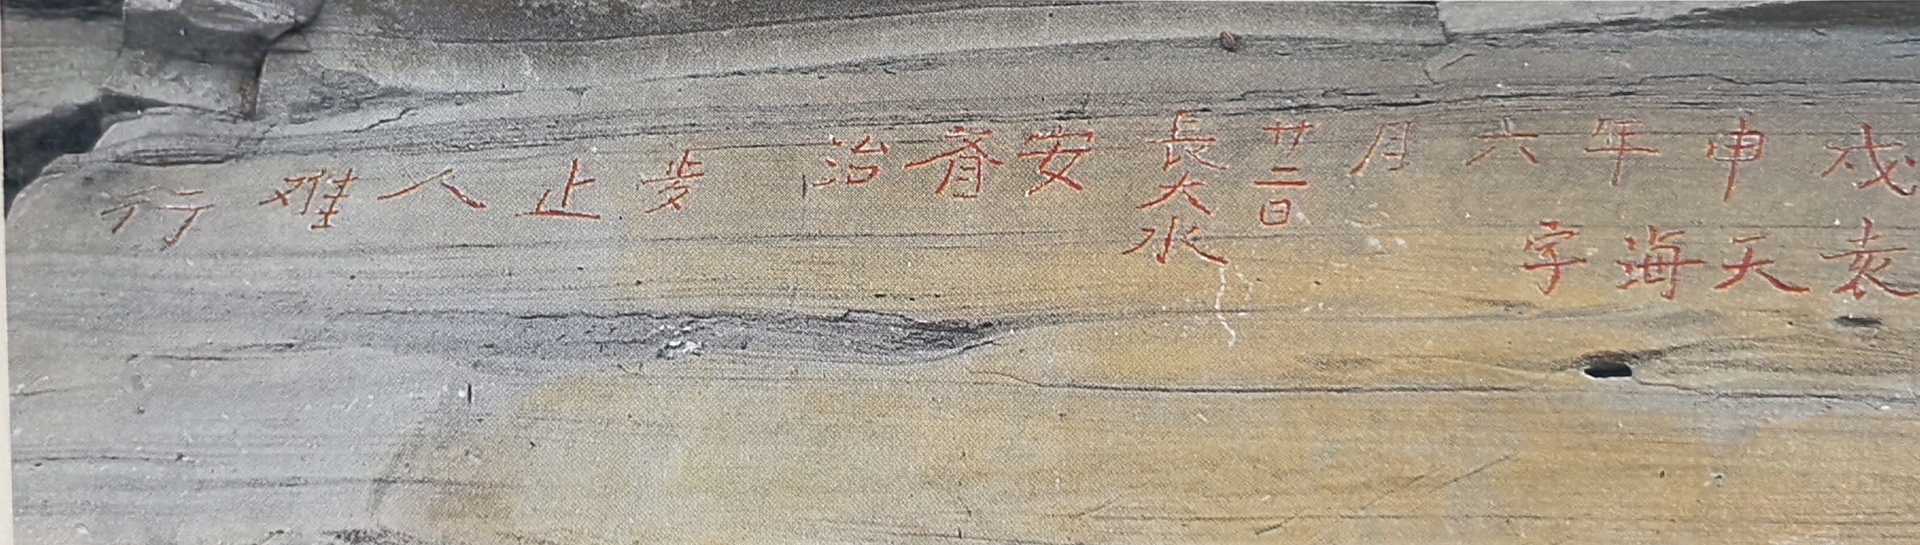 戊申年六月廿二日長大水安脊治步止人难行
袁天海字